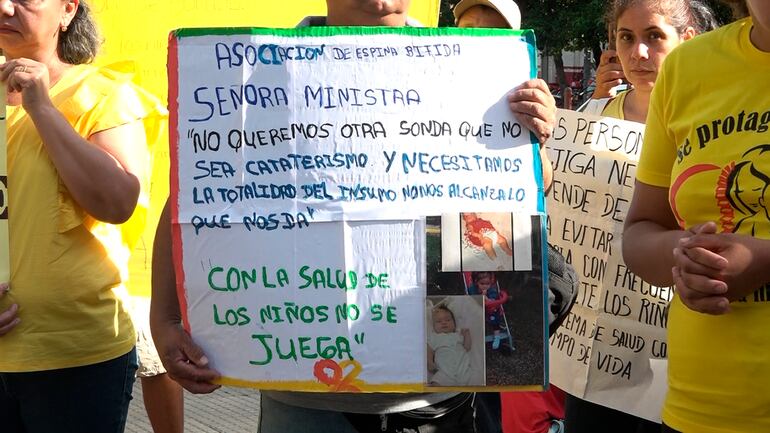 ASOCIACION DE ESPINA BIFIDA
SEÑORA MINISTRA
"NO QUEREMOS OTRA SONDA QUE NO
SEA CATATERISMO Y NECESITAMOS
LA TOTALIDAD DEL INSUMO NO NOS ALCANZA LO
QUE NOS DA"
"CON LA SALUD DE
LOS NIÑOS NO SE
JUEGA"
S PERSONAS
JIGA NE
ENDE DE
EVITAR
CON FRECUEN
TE LOS RIÑ
EMA DE SALUD CO
MPO DE VIDA
se protag